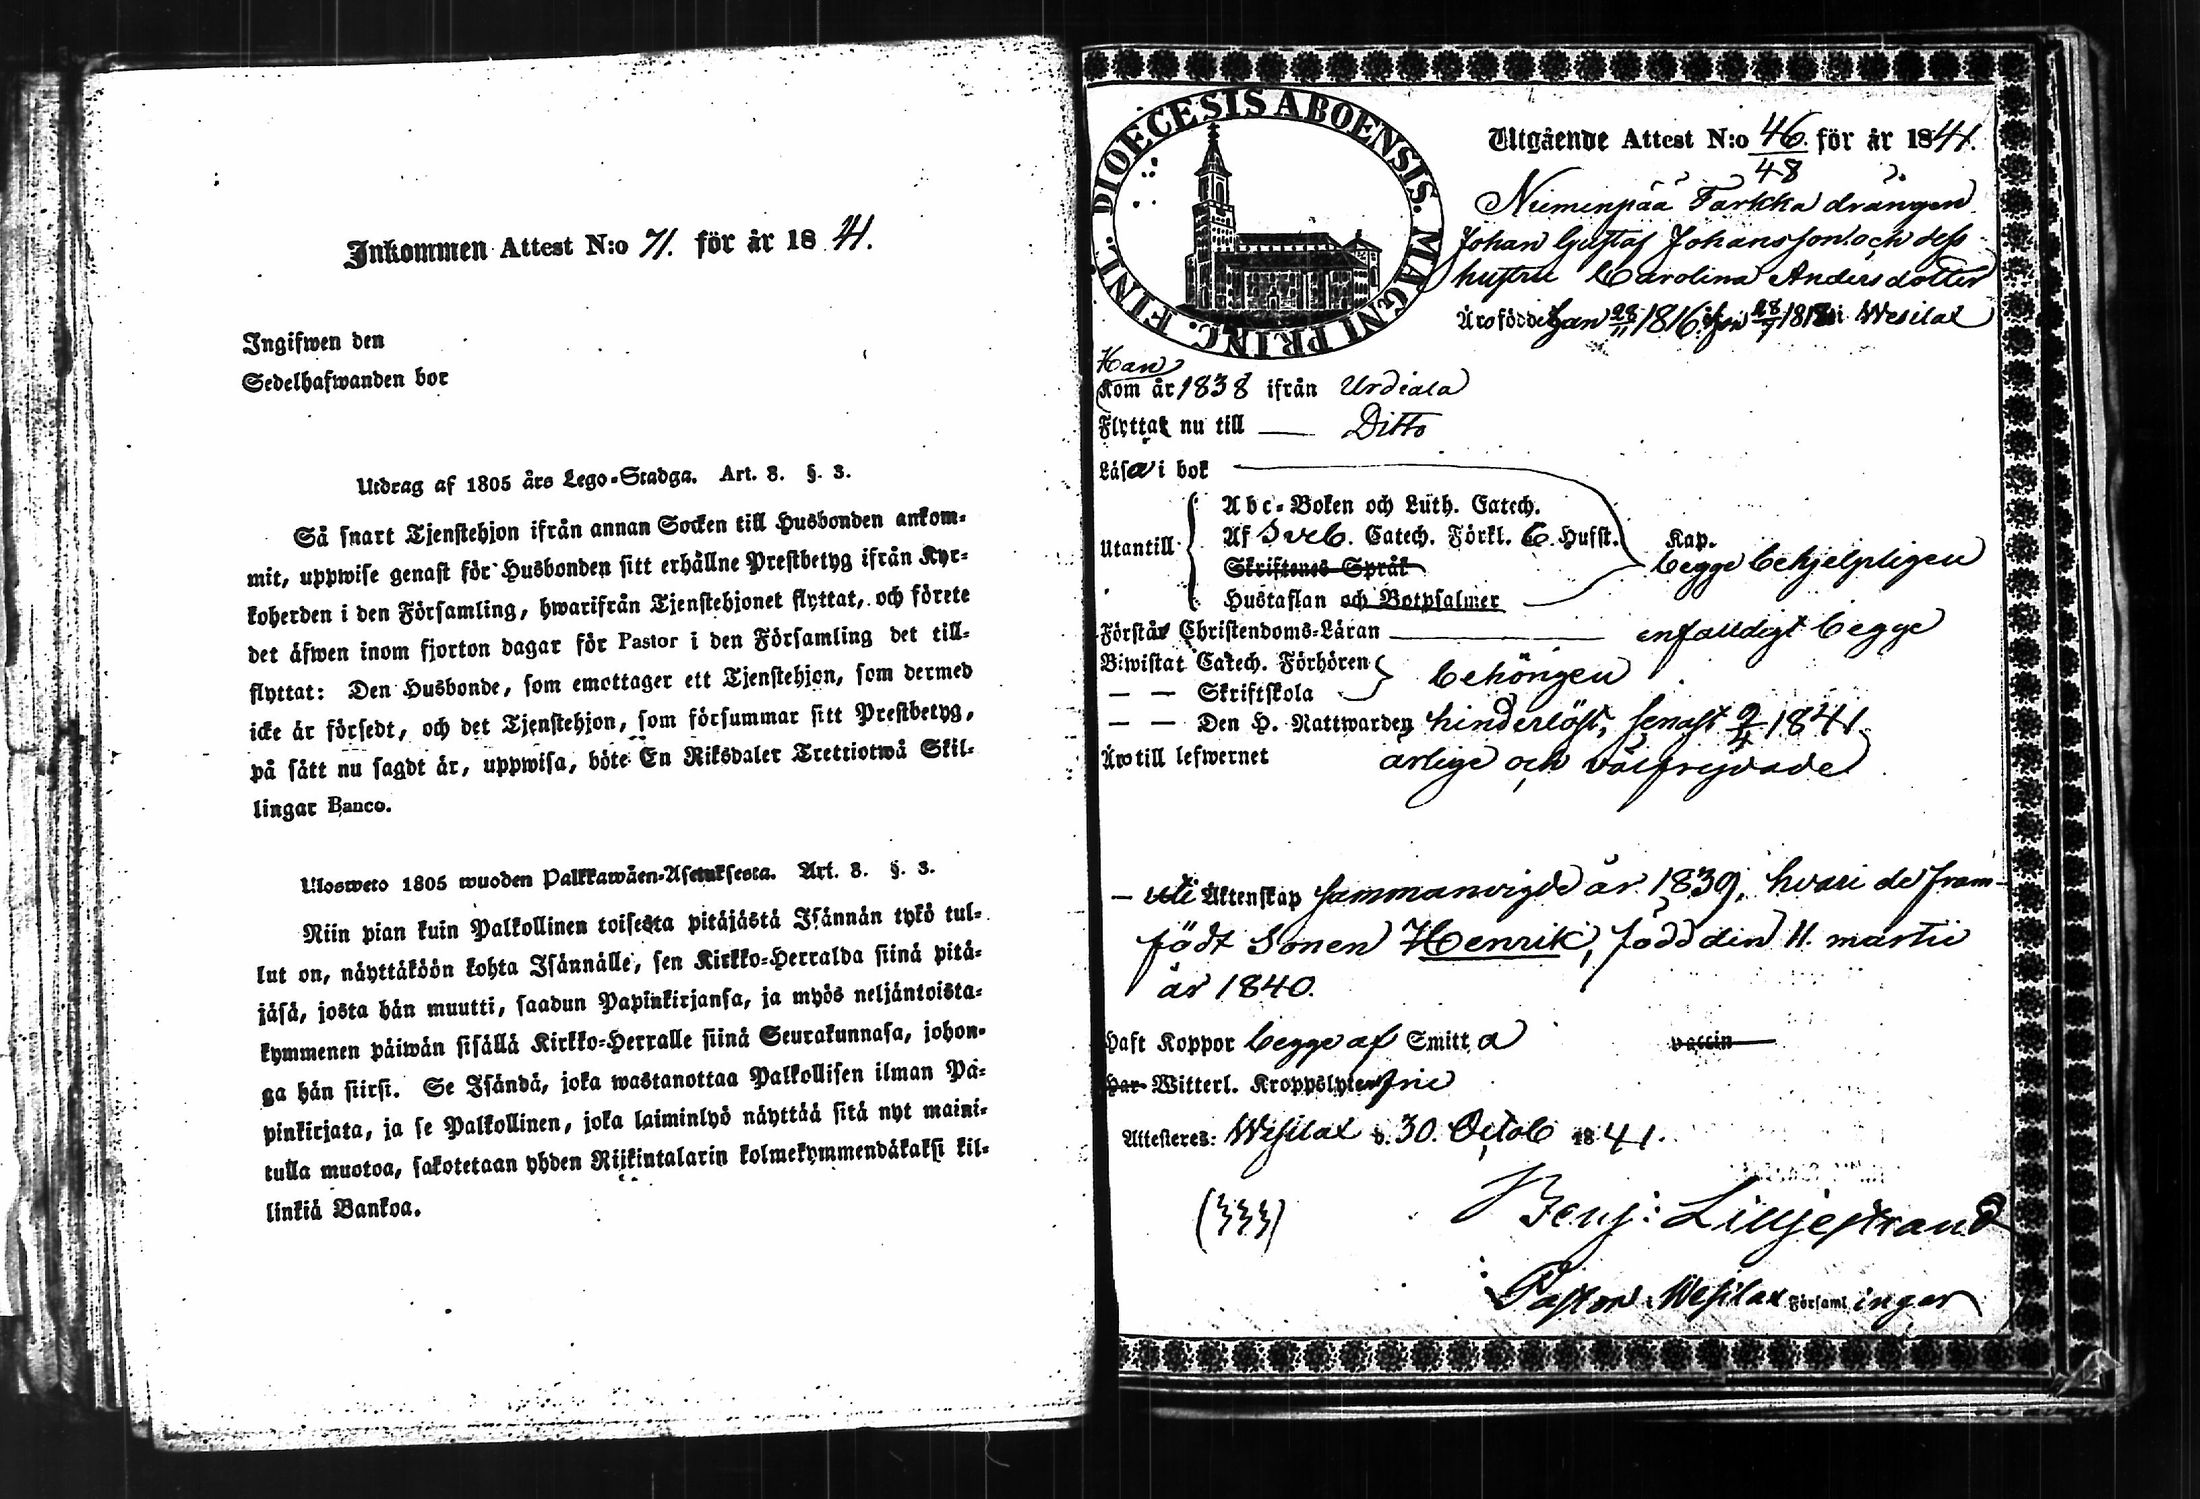 Inkommen Attest N:o 71. för år 1841.
Ingifwen den
Sedelhafwanden bor
Utdrag af 1805 års Lego-Stadga. Art. 8. §. 3.
Så snart Tjenstehjon ifrån annan Socken till Husbonden ankom-
mit, uppwise genast för Husbonden sitt erhållne Prestbetyg ifrån Kyr-
koherden i den Församling, hwarifrån Tjenstehjonet flyttat, och förete
det äfwen inom fjorton dagar för Pastor i den Församling det till-
flyttat: Den Husbonde, som emottager ett Tjenstehjon, som dermed
icke är försedt, och det Tjenstehjon, som försummar sitt Prestbetyg,
på sätt nu sagdt är, uppwisa, böte En Riksdaler Trettiotwå Skil-
lingar Banco.
Ulosweto 1805 wuoden Palkkawäen-Asetuksesta. Art. 8. §. 3.
Niin pian kuin Palkollinen toisesta pitäjästä Isännän tykö tul-
lut on, näyttäköön kohta Isännälle, sen Kirkko-Herralda siinä pitä-
jäsä, josta hän muutti, saadun Papinkirjansa, ja myös neljäntoista-
kymmenen päiwän sisällä Kirkko-Herralle siinä Seurakunnasa, johon-
ga hän siirsi. Se Isändä, joka wastanottaa Palkollisen ilman Pa-
pinkirjata, ja se Palkollinen, joka laiminlyö näyttää sitä nyt maini-
tulla muotoa, sakotetaan yhden Riikintalarin kolmekymmendäkaksi kil-
linkiä Bankoa.
DIOECESIS ABOENSIS. MAGNI PRINC. FINL.
Utgående Attest N:o 46. för år 1841.
48
Niemenpää Tarkka drängen
Johan Gustaf Johansson och dess
hustru Carolina Andersdotter
Äro födde han 28/11 1816, hon 28/7 1818 i Wesilax
Han
Kom år 1838 ifrån Urdiala
Flyttat nu till — Ditto
Läsa i bok
Abc-Boken och Luth. Catech.
Utantill Af Sveb. Catech. Förkl. C. Husst. Kap.
begge behjelpligen
Skriftenes Språk
Hustaflan och Botpsalmer
Förstår Christendoms-Läran — enfalldigt begge
Biwistat Catech. Förhören
behörigen
— — Skriftskola
— — Den H. Nattwarden hinderlöst, senast 9/4 1841
Äro till lefwernet ärlige och välfrejdade
— Äktenskap sammanvigde år 1839, hvari de fram-
födt sonen Henrik, född den 11. martii
år 1840.
Haft Koppor begge af Smitta vaccin
Har Witterl. Kroppslyten frie
Attesteres: Wesilax d. 30. Octob 1841.
Benj: Liljestrand
Pastor i Wesilax Församl ingar